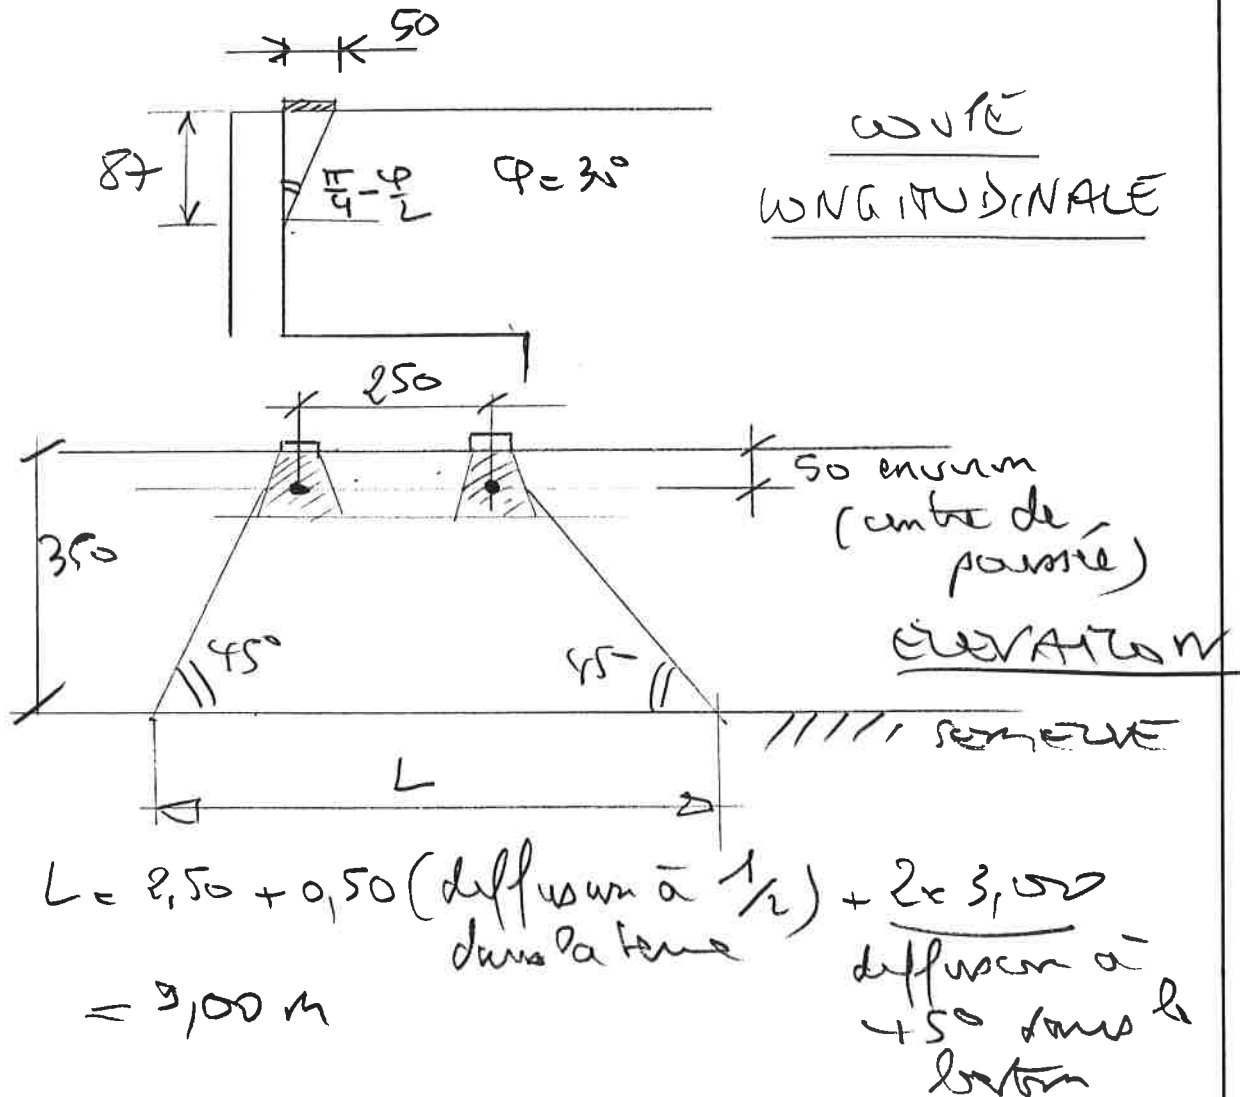 50
COUPE
LONGITUDINALE
87
π/4 - φ/2
φ = 30°
250
50 environ
(centre de
poussée)
350
ELEVATION
45°
45°
SEMELLE
L
L = 2,50 + 0,50 (diffusion à 1/2) + 2x3,00
dans la terre
diffusion à
45° dans le
béton
= 9,00 m